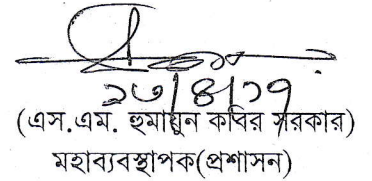 (এস.এম. হুমায়ুন কবির সরকার)
মহাব্যবস্থাপক(প্রশাসন)